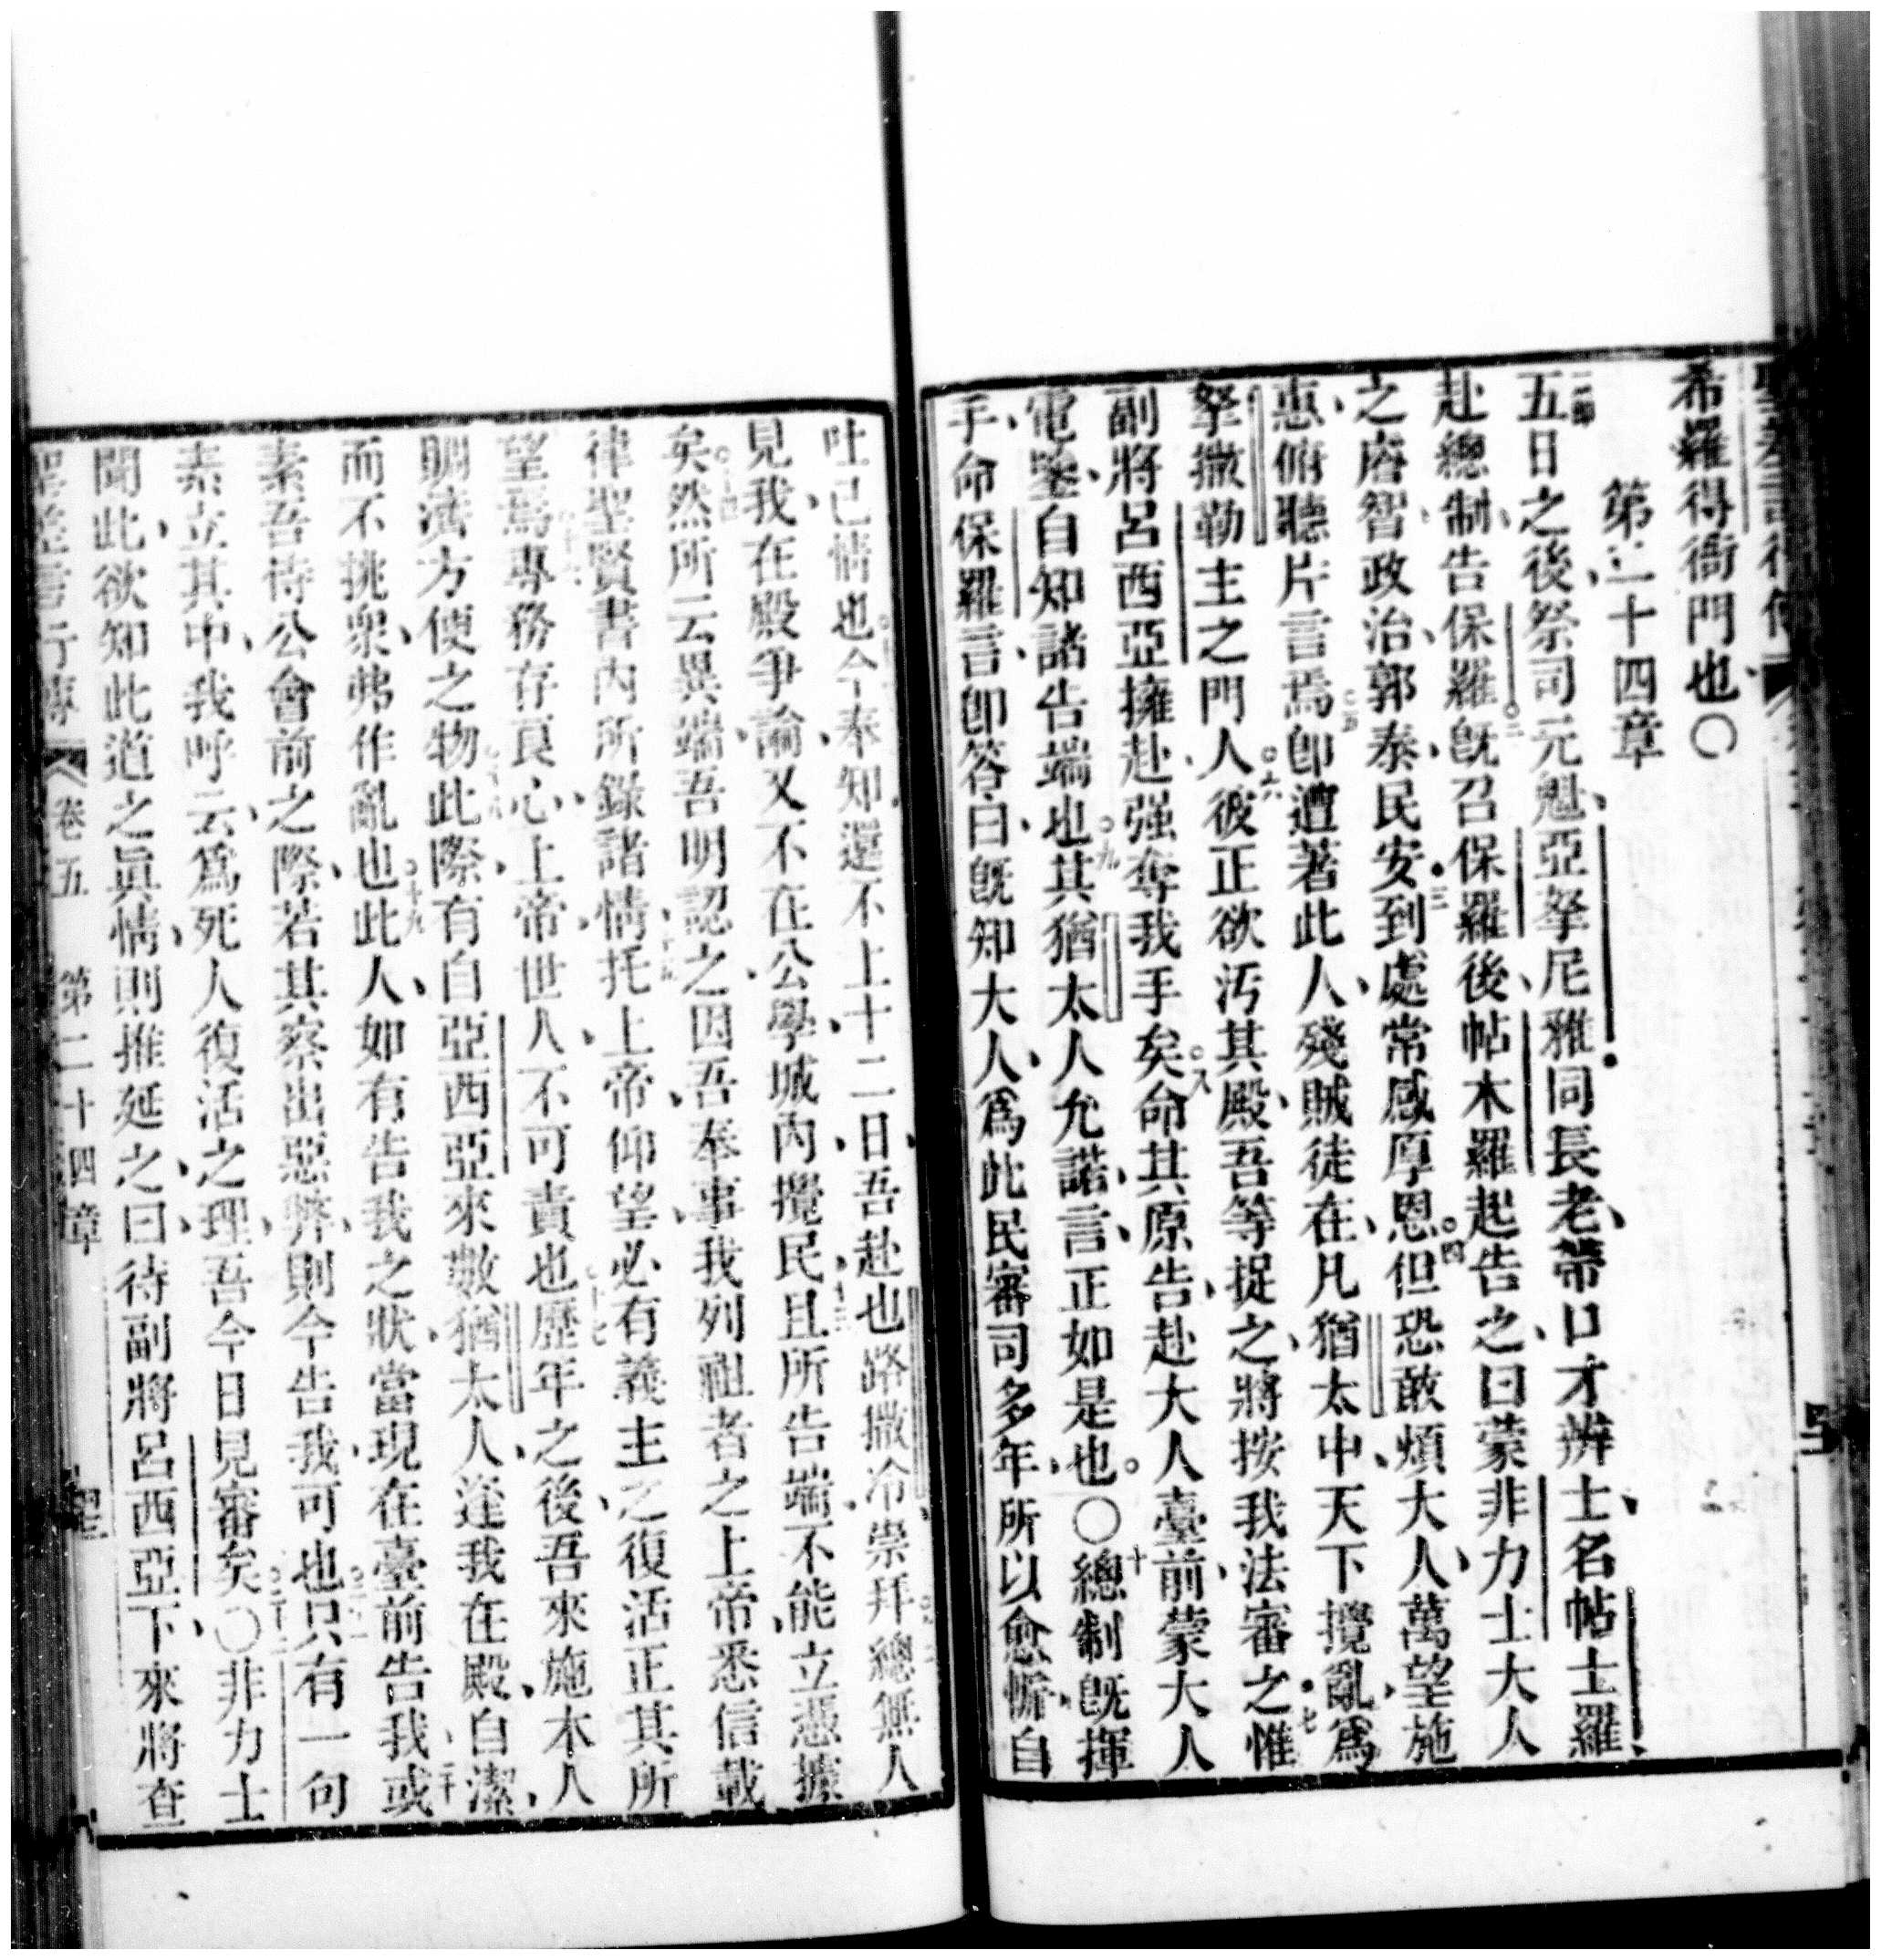 希羅得衙門也〇
第二十四章
五日之後祭司元魁亞拏尼雅同長老帶口才辨士名帖士羅
赴總制告保羅旣召保羅後帖木羅起告之曰蒙非力士大人
之睿智政治郭泰民安到處常感厚恩但恐敢煩大人萬望施
惠俯聽片言焉卽遭著此人殘賊徒在凡猶太中天下攪亂爲
拏撒勒主之門人彼正欲汚其殿吾等捉之將按我法審之惟
副將呂西亞擁赴强奪我手矣命其原告赴大人臺前蒙大人
電鑒自知諸告端也其猶太人允諾言正如是也〇總制旣揮
手命保羅言卽答曰旣知大人爲此民審司多年所以愈忻自
吐己情也今奉知還不上十二日吾赴也路撒冷崇拜總無人
見我在殿爭論又不在公學城內攪民且所告端不能立憑據
矣然所云異端吾明認之因吾奉事我列祖者之上帝悉信載
律聖賢書內所錄諸情托上帝仰望必有義主之復活正其所
望焉專務存良心上帝世人不可責也歷年之後吾來施本人
賙濟方便之物此際有自亞西亞來數猶太人逢我在殿自潔
而不挑衆弗作亂也此人如有告我之狀當現在臺前告我或
素吾待公會前之際若其察出惡弊則今告我可也只有一句
素立其中我呼云爲死人復活之理吾今日見審矣〇非力士
聞此欲知此道之眞情則推延之曰待副將呂西亞下來將查
聖差言行傳 卷五 第二十四章